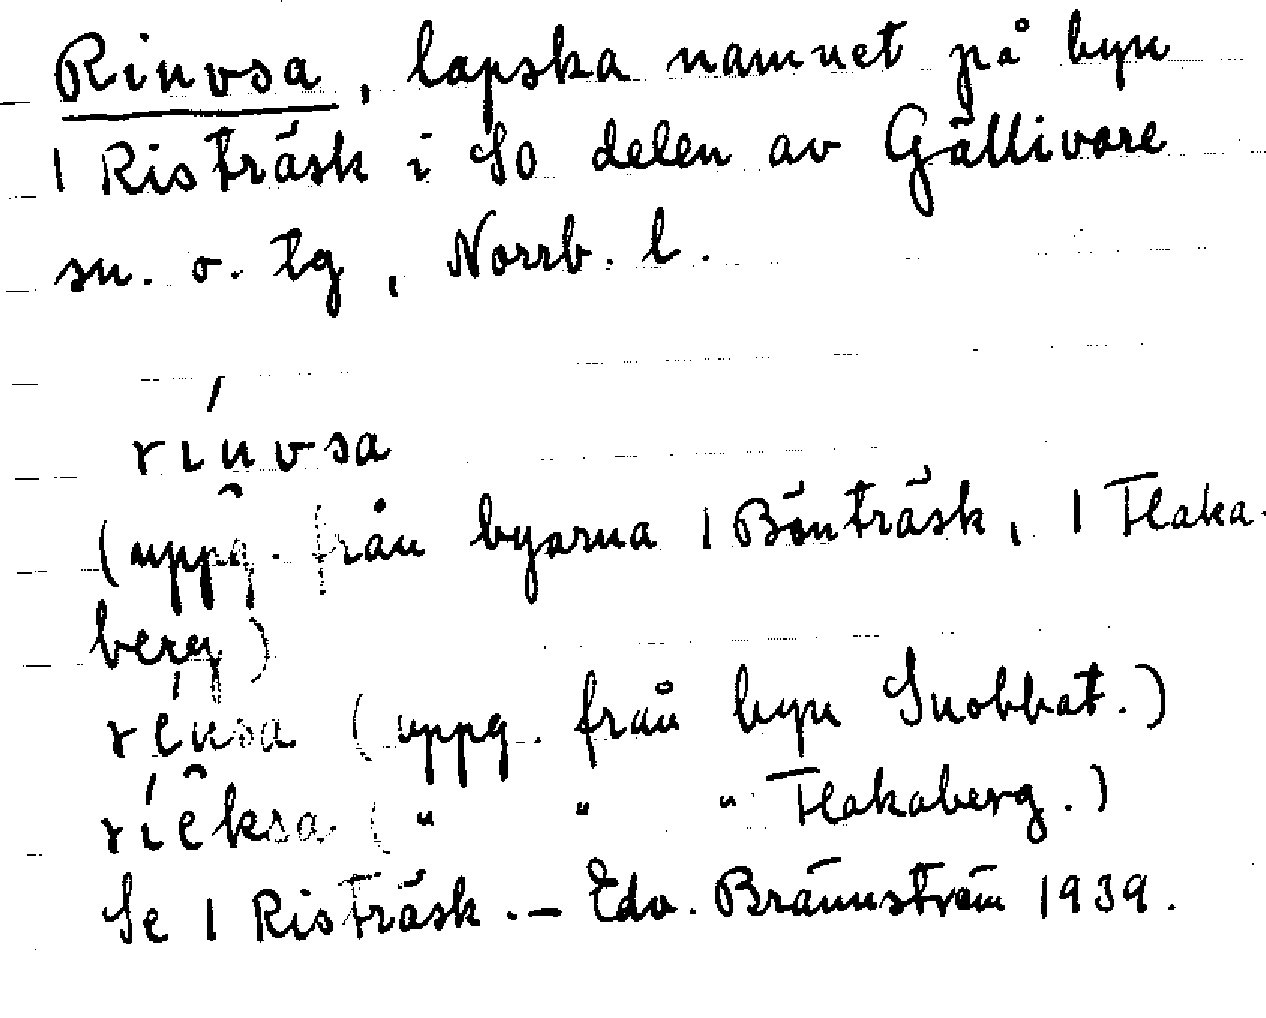 Rinvsa, lapska namnet på byn
1 Risträsk i SO delen av Gällivare
sn. o. tg, Norrb. l.
rinvsa
(uppg. från byarna 1 Bönträsk, 1 Flaka-
berg)
rénsa (uppg. från byn Snobbat.)
rieksa (" " " Flakaberg.)
Se 1 Risträsk. – Edv. Brännström 1939.